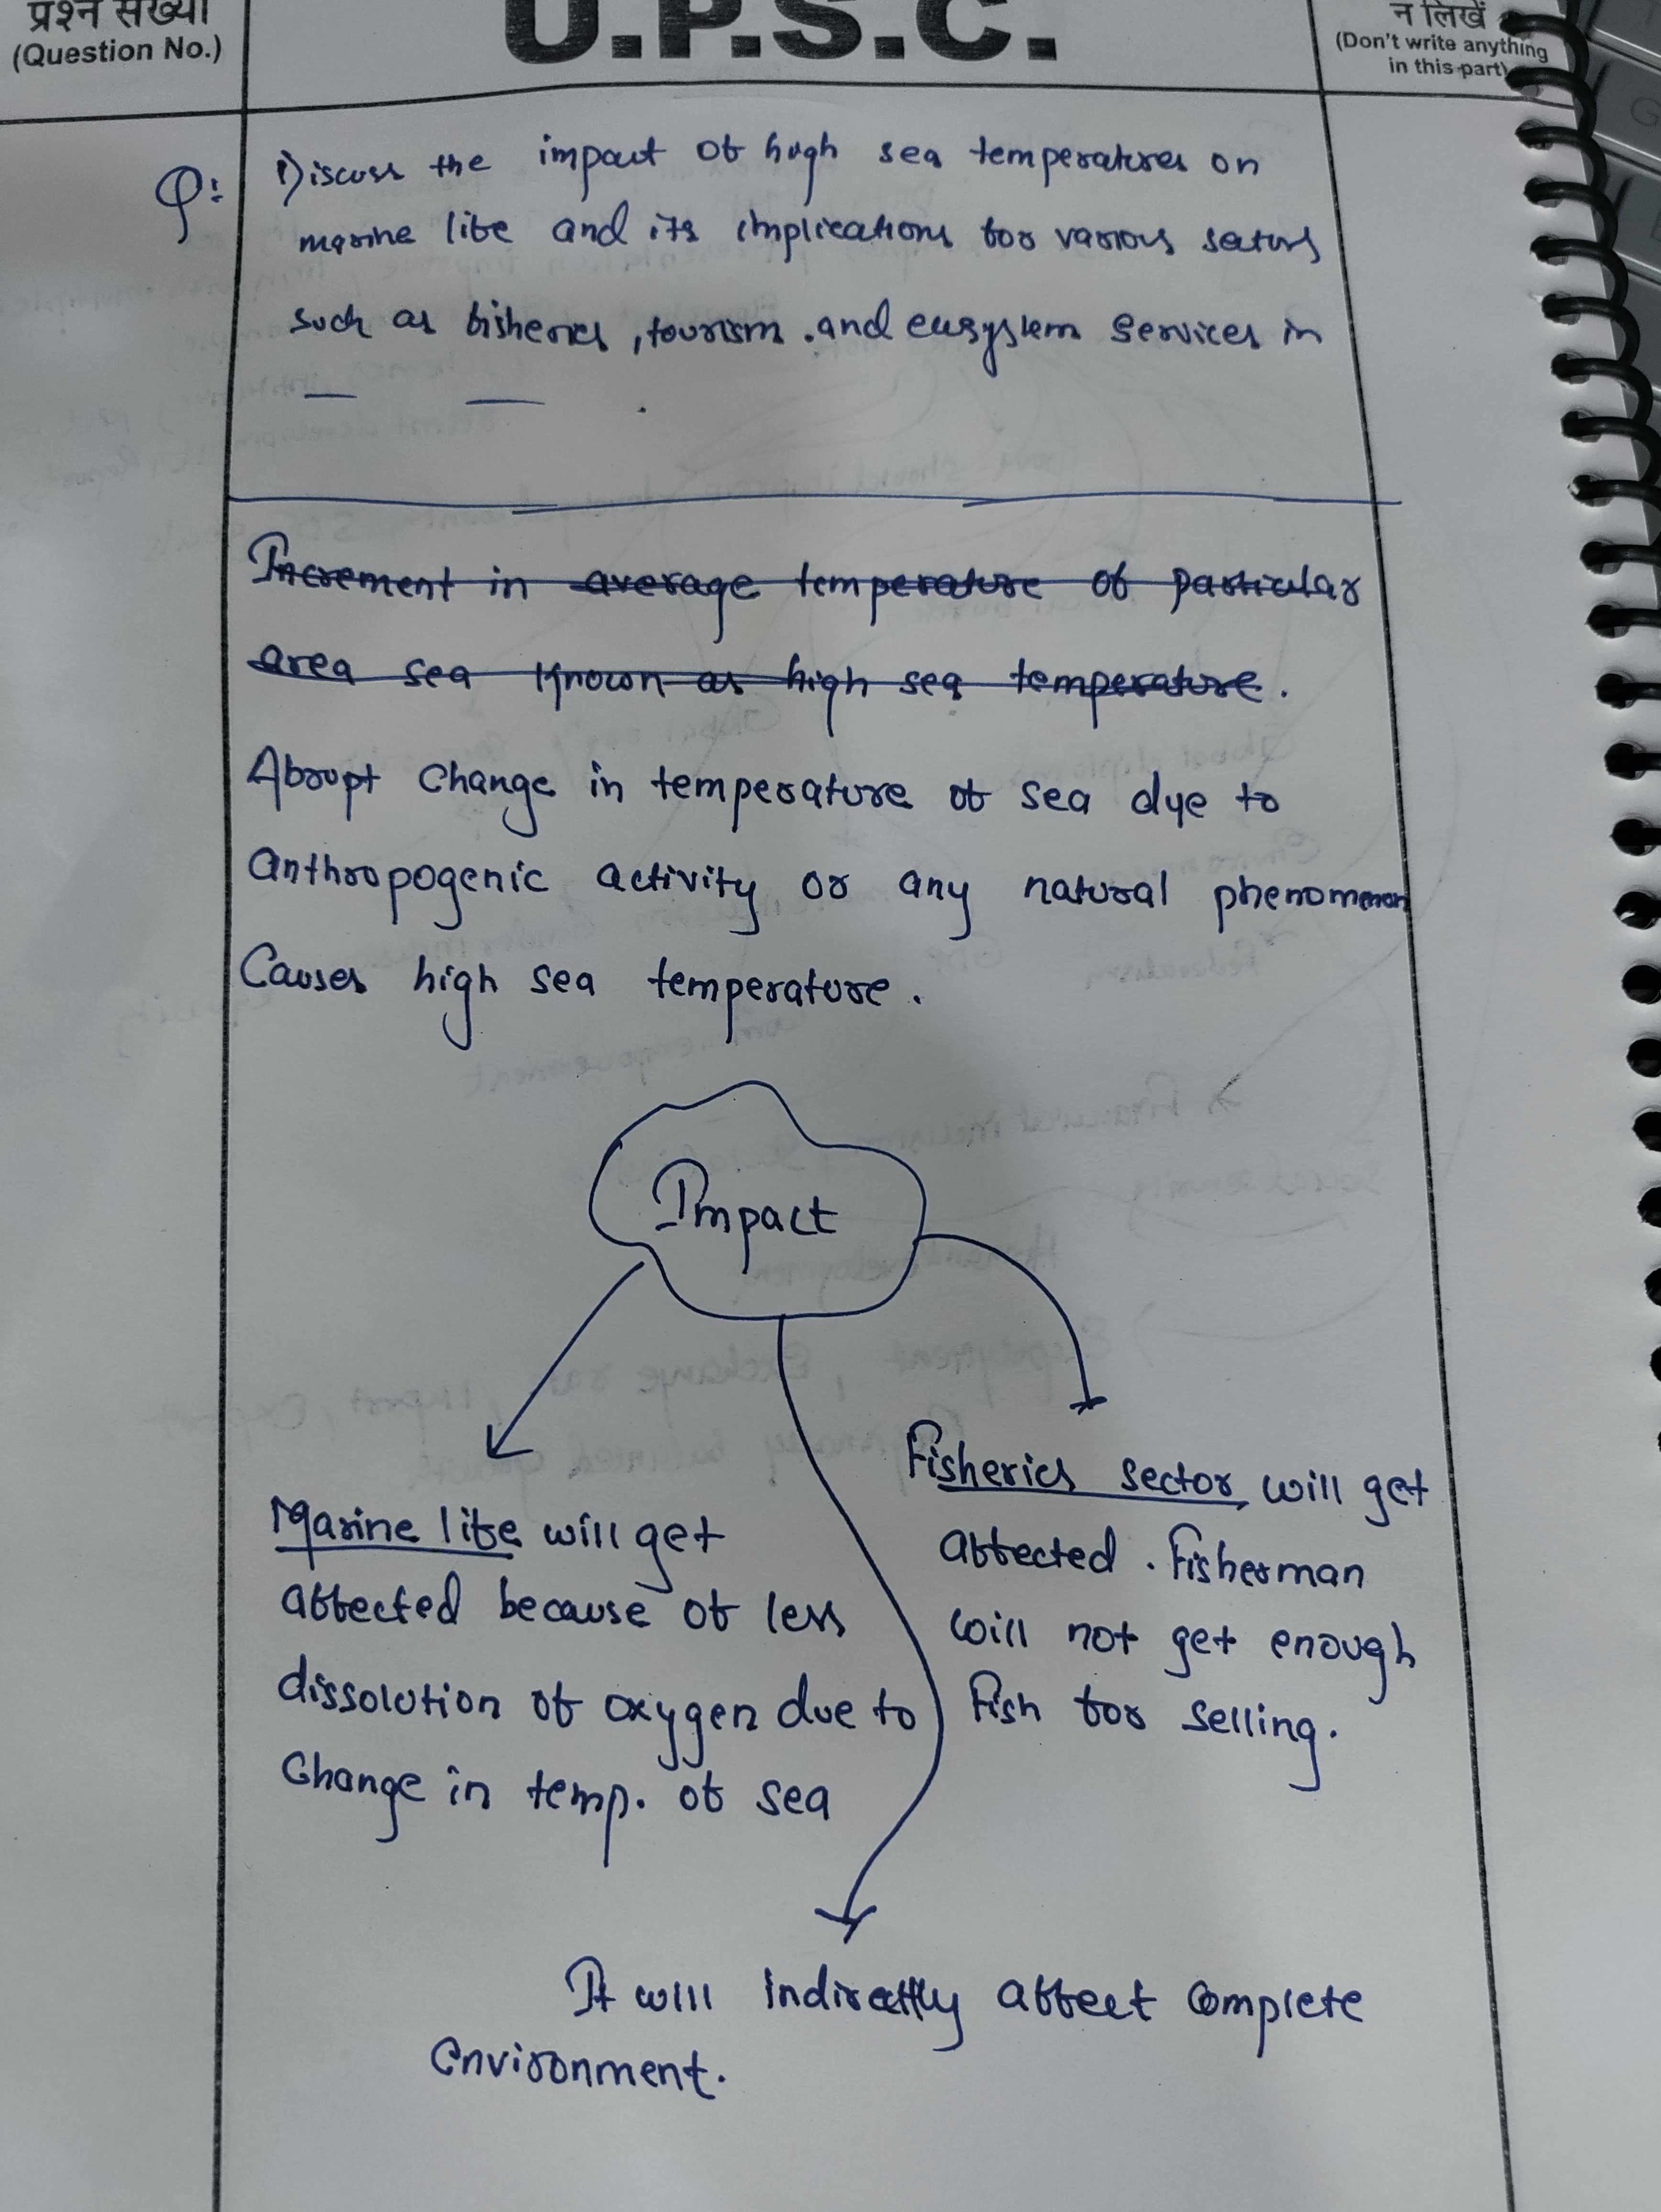 प्रश्न संख्या
(Question No.)
U.P.S.C.
न लिखें
(Don't write anything
in this part)
Q:
Discuss the impact of high sea temperatures on
marine life and its implications for various sectors
such as fisheries, tourism. and ecosystem services in
Increment in average temperature of particular
area sea known as high sea temperature.
Abrupt Change in temperature of sea dye to
anthropogenic activity or any natural phenomenon
Causes high sea temperature.
Impact
Fisheries sector will get
affected. Fisherman
will not get enough
Fish for selling.
Marine life will get
affected because of less
dissolution of oxygen due to
Change in temp. of sea
It will indirectly affect Complete
environment.